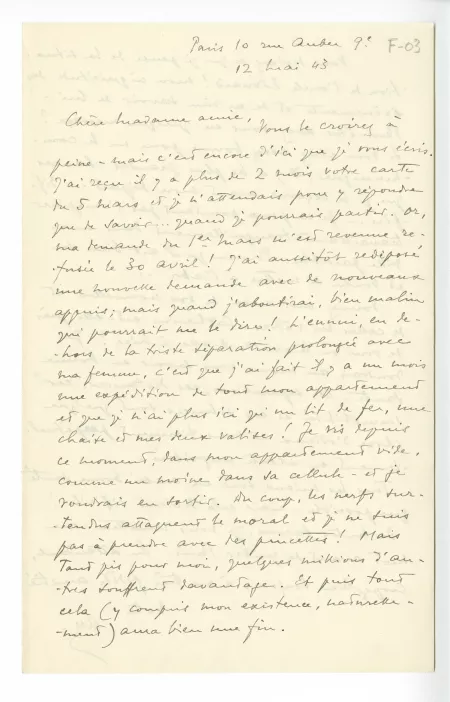 Paris 10 rue Auber 9e F-03
12 Mai 43
Chère Madame amie, Vous le croirez à
peine – mais c'est encore d'ici que je vous écris.
J'ai reçu il y a plus de 2 mois votre carte
du 5 mars et je n'attendais pour y répondre
que de savoir... quand je pourrais partir. Or,
ma demande du 1er Mars m'est revenue re-
-fusée le 30 avril ! J'ai aussitôt redéposé
une nouvelle demande avec de nouveaux
appuis ; mais quand j'aboutirai, bien malin
qui pourrait me le dire ! L'ennui, en de-
-hors de la triste séparation prolongée avec
ma femme, c'est que j'ai fait il y a un mois
une expédition de tout mon appartement
et que je n'ai plus ici qu'un lit de fer, une
chaise et mes deux valises ! Je vis depuis
ce moment, dans mon appartement vide,
comme un moine dans sa cellule – et je
voudrais en sortir. Du coup, les nerfs sur-
-tendus attaquent le moral et je ne suis
pas à prendre avec des pincettes ! Mais
tant pis pour moi, quelques millions d'au-
-tres souffrent davantage. Et puis tout
cela (y compris mon existence, naturelle-
-ment) aura bien une fin.